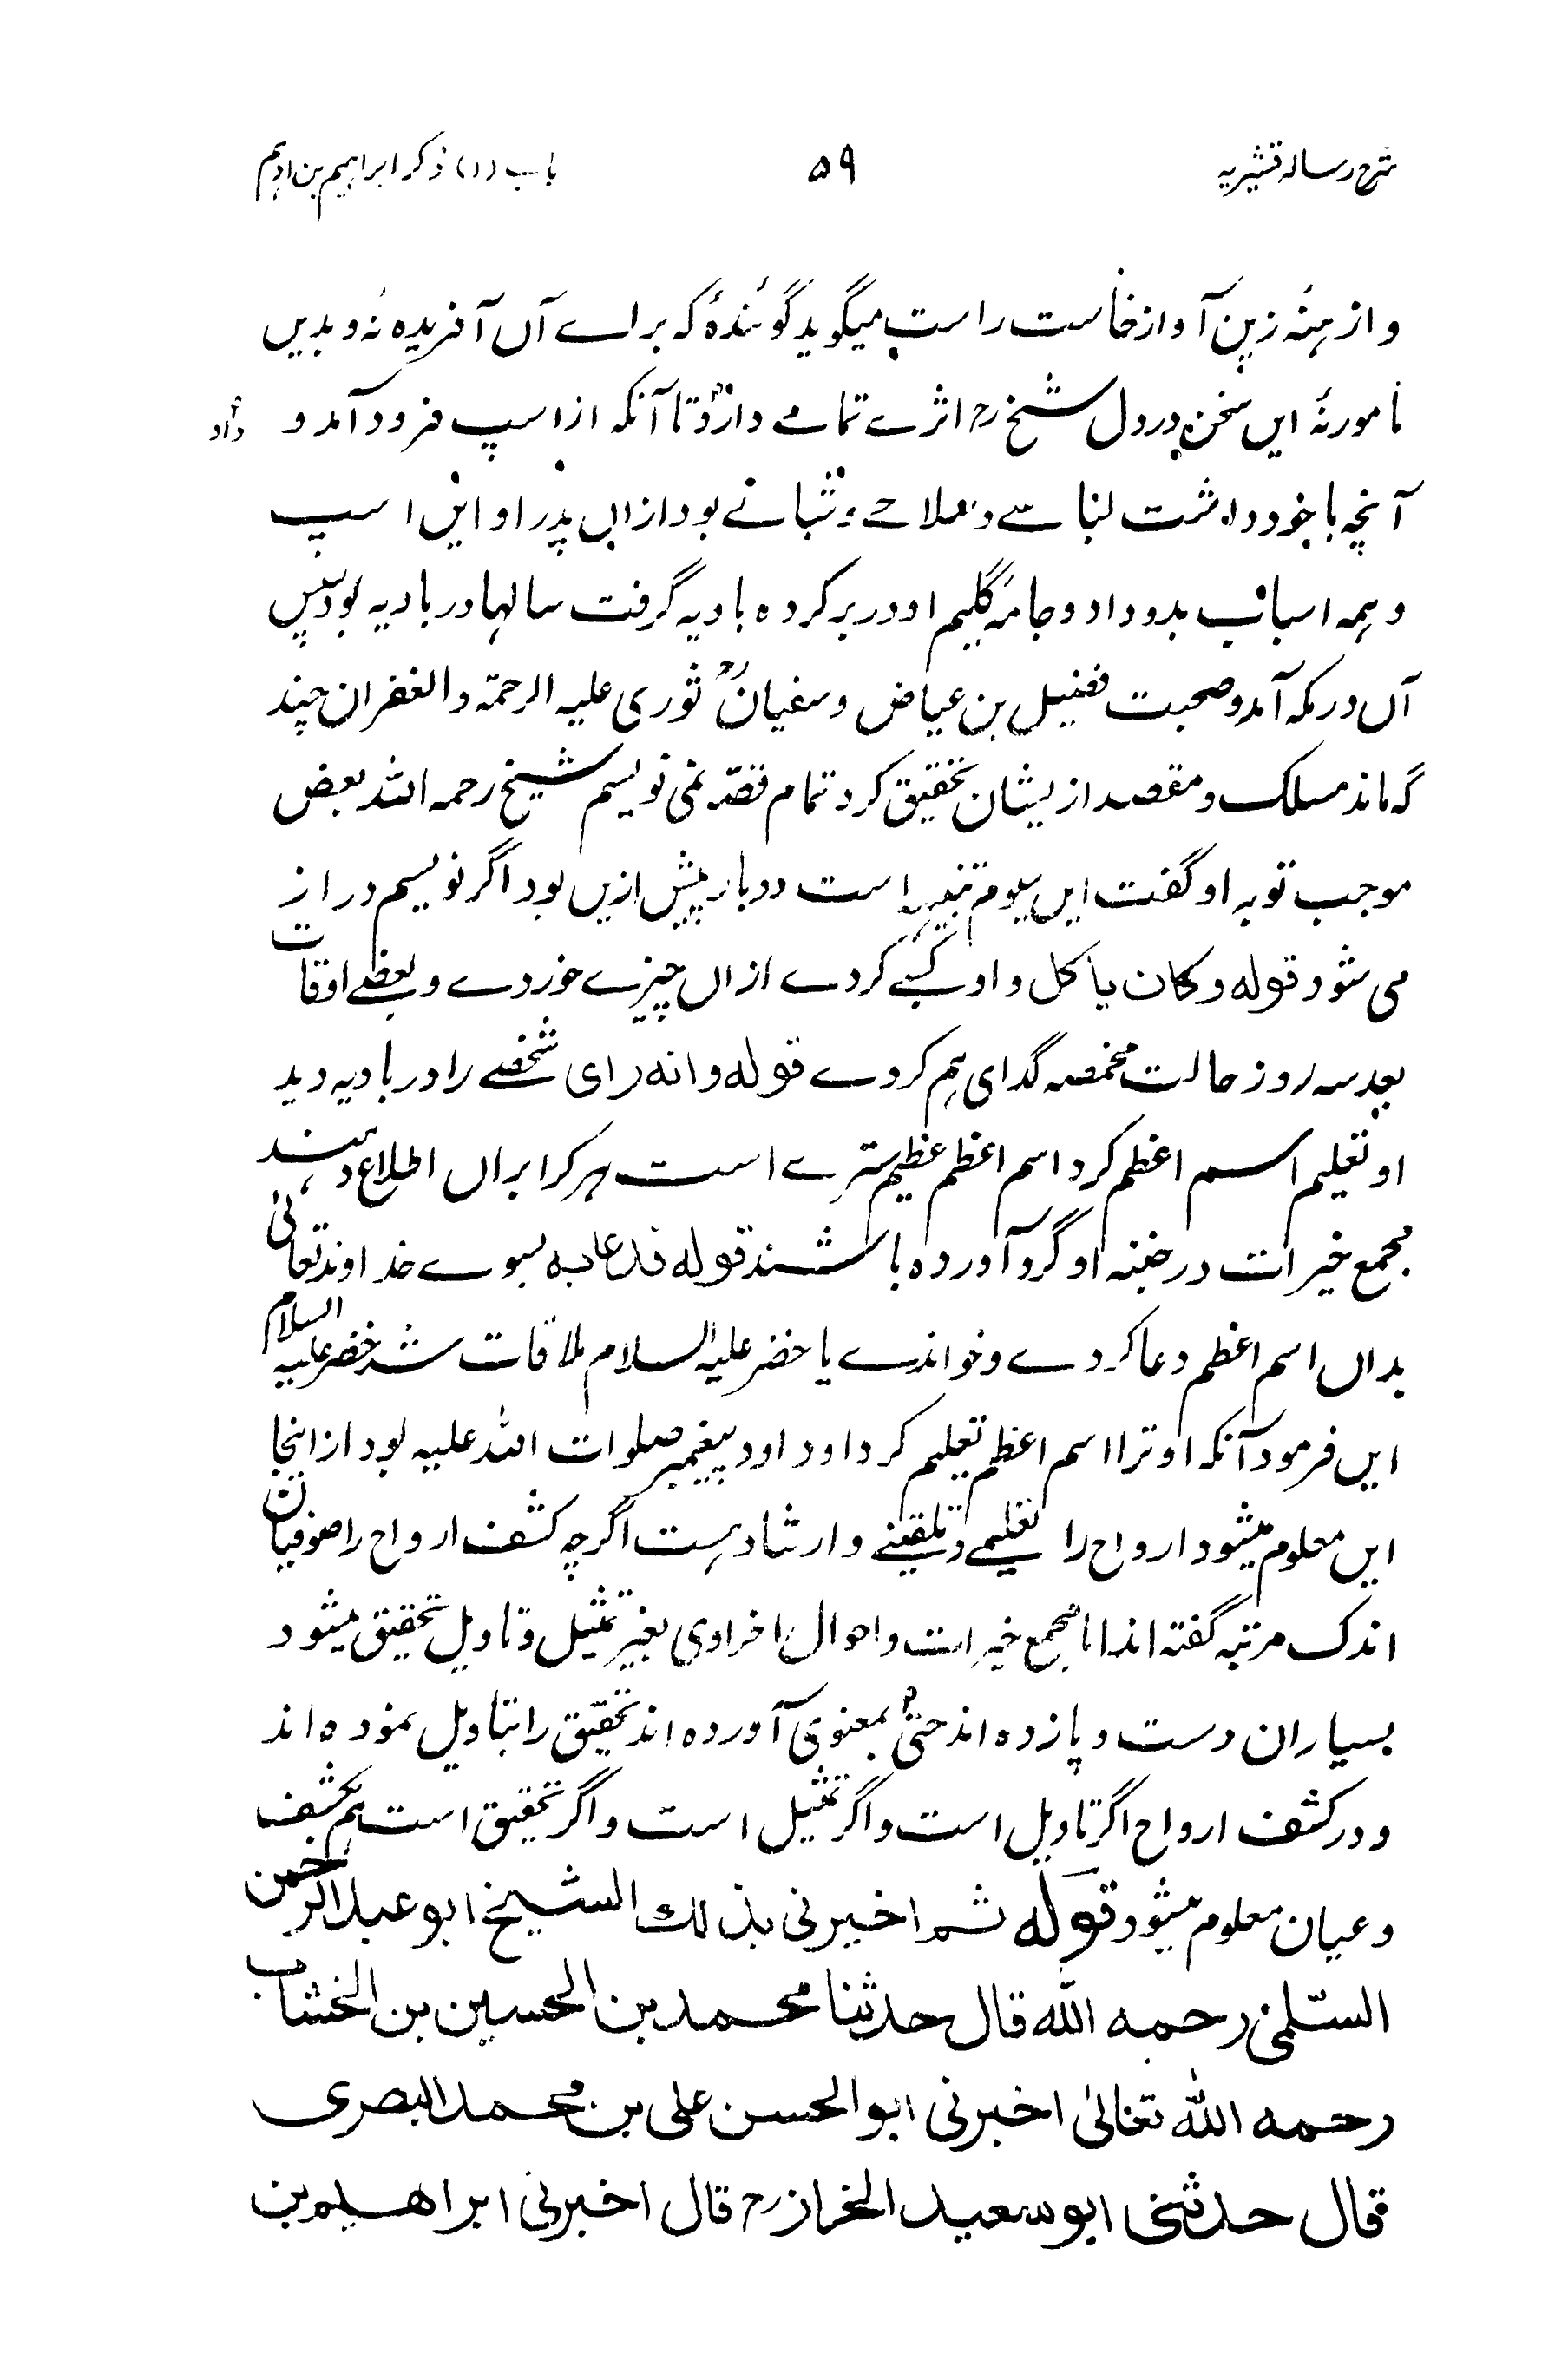 شرح رساله قشیریه ۵۹ باب (۱) ذکر ابراهیم بن ادهم
و از بنهٔ زین آواز خاست راست میگوید گوئندهٔ که برائے آں آفریدہ نۂ و بدیں
مامور نۂ ایں سخن در دل شیخ رح اثرے تمامے داد تا آنکہ از اسپ فرود آمد و داد
آنچہ با خود داشت لباسے و سلاحے و شبانے بود ازاں پدر او ایں اسپ
و ہمہ اسباب بدو داد و جامۂ گلیم او در بر کردہ بادیہ گرفت سالہا در بادیہ بود پس
آں در مکہ آمد و صحبت فضیل بن عیاض و سفیان ثوری علیہ الرحمتہ والغفران چند
گہ ماند مسلک و مقصد از یشان تحقیق کرد تمام قصّہ نمی نویسم شیخ رحمہ اللہ بعض
موجب توبہ او گفت ایں سیوم تنبیہ است دو بار پیش ازیں بود اگر نویسم دراز
می شود قوله وکان یاکل و او کسبے کردے ازاں چیزے خوردے و بعضے اوقات
بعد سہ روز حالت مخمصہ گدای ہم کردے قوله وانه رای شخصے را در بادیہ دید
او تعلیم اسم اعظم کرد اسم اعظم عظیم سترے است ہر کرا براں اطلاع دہند
مجمع خیرات در خفیہ او گرد آوردہ باشند قوله فدعا به بسوے خداوند تعالیٰ
بداں اسم اعظم دعا کردے و خواندے با خضر علیہ السلام ملاقات شد خضر علیہ السلام
ایں فرمود آنکہ او ترا اسم اعظم تعلیم کرد او داود پیغمبر صلوات اللہ علیہ بود از اینجا
ایں معلوم میشود ارواح را تعلیمے و تلقینے و ارشاد ہست اگرچہ کشف ارواح را صوفیان
اندک مرتبہ گفتہ اند اما مجمع خیرات و احوال اخراوی بغیر تمثیل و تاویل تحقیق میشود
بسیاران دست و پا زدہ اند حتیٰ بمعنوی آوردہ اند تحقیق را بتاویل نمودہ اند
و در کشف ارواح اگر تاویل است و اگر تمثیل است و اگر تحقیق است ہم بکشف
و عیان معلوم میشود قوله ثم اخبرنی بذلك الشیخ ابو عبد الرحمن
السّلمی رحمه الله قال حدثنا محمد بن الحسین بن الخشاب
رحمه الله تعالیٰ اخبرنی ابوالحسن علی بن محمد البصری
قال حدثنی ابو سعید الخراز رح قال اخبرنی ابراهیم بن